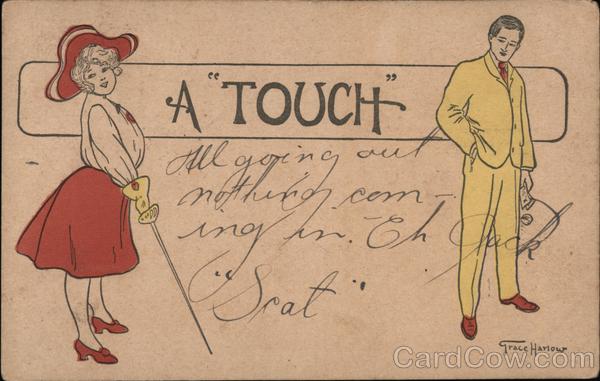 A "TOUCH"
All going out
nothing com-
ing in. Eh Jack
"Scat"
Grace Harlow
CardCow.com